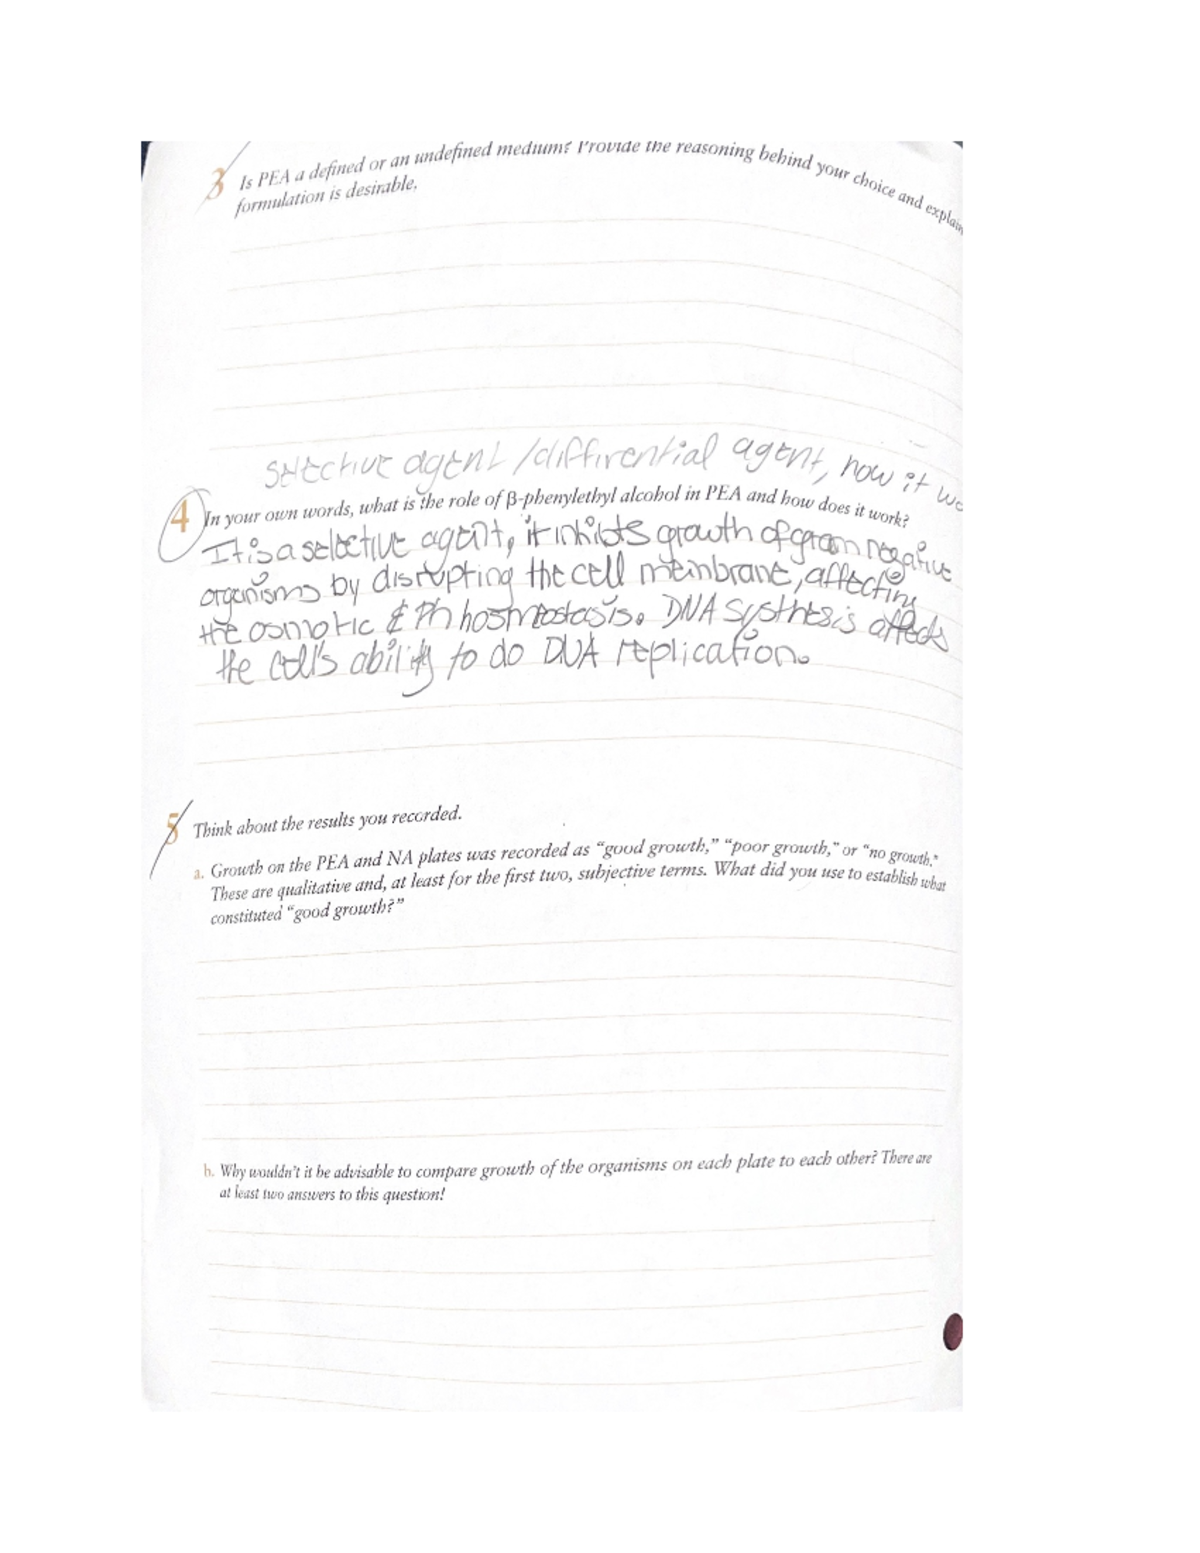 3 Is PEA a defined or an undefined medium? Provide the reasoning behind your choice and explain
formulation is desirable.
selective agent /diffirential agent, how it
4 In your own words, what is the role of β-phenylethyl alcohol in PEA and how does it work?
It is a selective agent, it inhibts growth of gram negative
organisms by disrupting the cell membrane, affecting
the osmotic & Ph hosmeostasis. DNA systhesis affects
the cell's ability to do DNA replication.
5 Think about the results you recorded.
a. Growth on the PEA and NA plates was recorded as “good growth,” “poor growth,” or “no growth.”
These are qualitative and, at least for the first two, subjective terms. What did you use to establish what
constituted “good growth?”
b. Why wouldn't it be advisable to compare growth of the organisms on each plate to each other? There are
at least two answers to this question!